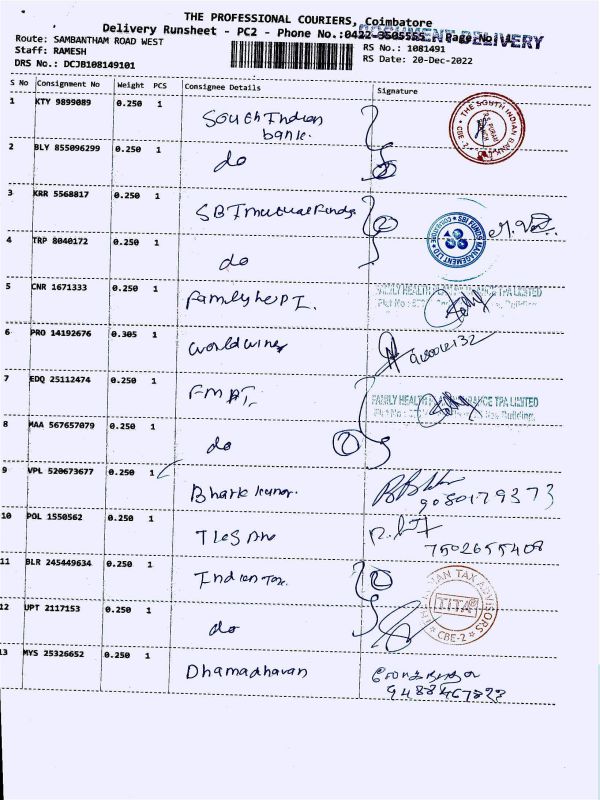 THE PROFESSIONAL COURIERS, Coimbatore
Delivery Runsheet - PC2 - Phone No.:0422-3505555 Page No 1
DOCUMENT DELIVERY
Route: SAMBANTHAM ROAD WEST
RS No.: 1081491
Staff: RAMESH
RS Date: 20-Dec-2022
DRS No.: DCJB108149101
S No Consignment No Weight PCS Consignee Details Signature
1 KTY 9899089 0.250 1 South Indian bank.
THE SOUTH INDIAN BANK CBE-2
2 BLY 855096299 0.250 1 do
3 KRR 5568817 0.250 1 SBI mutual Funds
SBI FUNDS MANAGEMENT LTD COIMBATORE
4 TRP 8040172 0.250 1 do
5 CNR 1671333 0.250 1 Family
FAMILY HEALTH TPA LIMITED
Plot No Building
6 PRO 14192676 0.305 1 world
7 EDQ 25112474 0.250 1
FAMILY HEALTH INSURANCE TPA LIMITED
Plot No Building,
8 MAA 567657079 0.250 1 do 2
9 VPL 520673677 0.250 1 Bhark kumar. 9080179373
10 POL 1550562 0.250 1 7502655408
11 BLR 245449634 0.250 1 Indian Tax. 2
INDIAN TAX ADVISORS TITA CBE-2
12 UPT 2117153 0.250 1 do
13 MYS 25326652 0.250 1 Dhamadharan